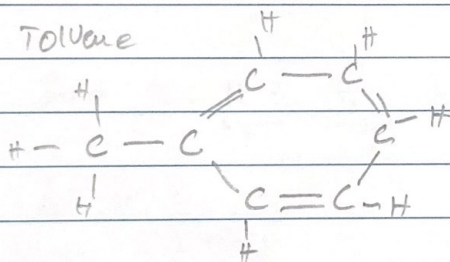 Toluene
H H
H C — C
H — C — C C — H
H C = C — H
H